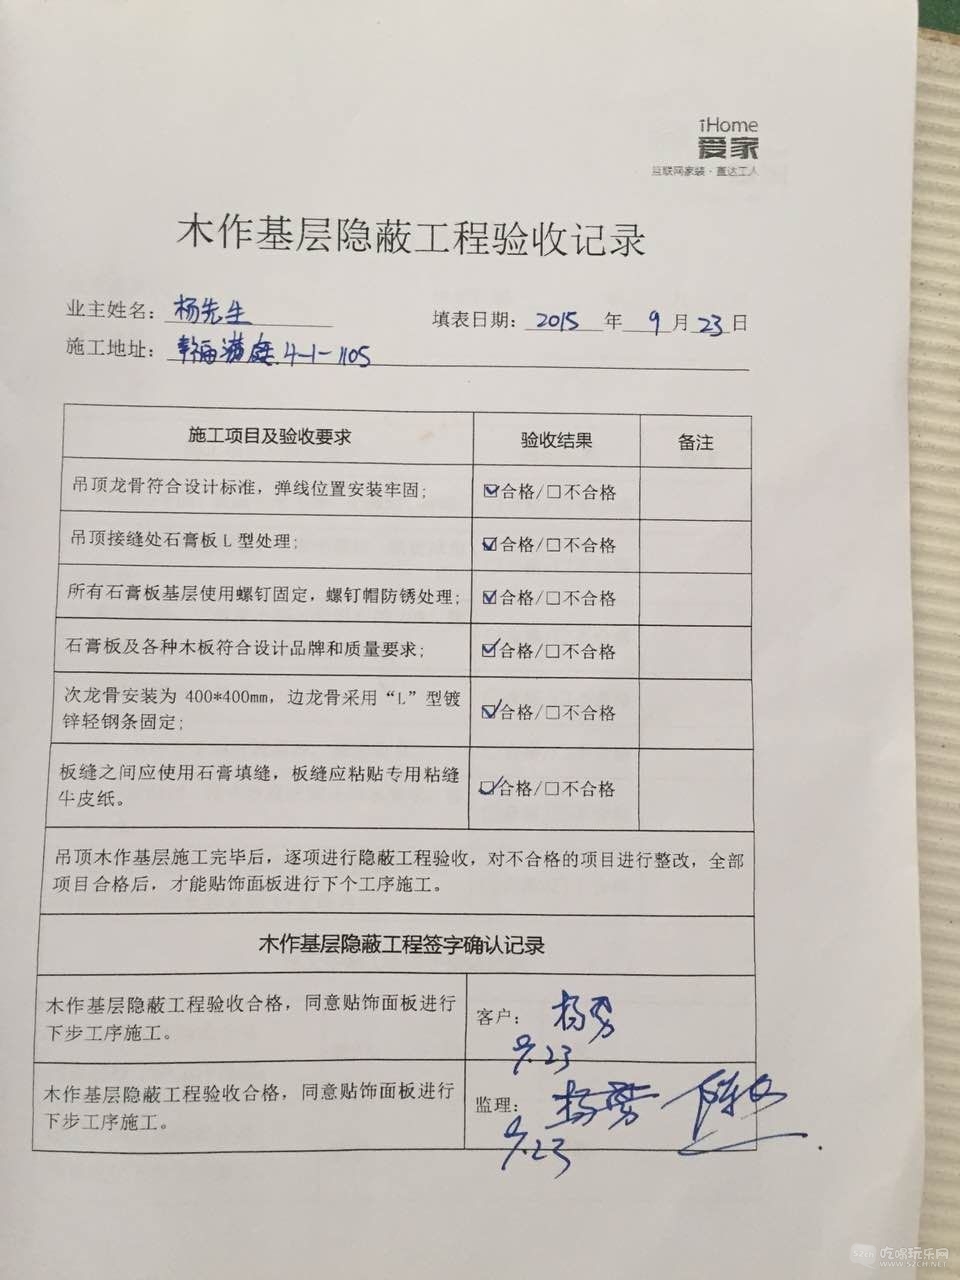 iHome
爱家
互联网家装·直达工人
木作基层隐蔽工程验收记录
业主姓名: 杨先生 填表日期: 2015 年 9 月 23 日
施工地址: 幸福满庭 4-1-1105
施工项目及验收要求 验收结果 备注
吊顶龙骨符合设计标准，弹线位置安装牢固; ☑合格/□不合格
吊顶接缝处石膏板 L 型处理; ☑合格/□不合格
所有石膏板基层使用螺钉固定，螺钉帽防锈处理; ☑合格/□不合格
石膏板及各种木板符合设计品牌和质量要求; ☑合格/□不合格
次龙骨安装为 400*400mm，边龙骨采用“L”型镀
锌轻钢条固定; ☑合格/□不合格
板缝之间应使用石膏填缝，板缝应粘贴专用粘缝
牛皮纸。 ☑合格/□不合格
吊顶木作基层施工完毕后，逐项进行隐蔽工程验收，对不合格的项目进行整改，全部
项目合格后，才能贴饰面板进行下个工序施工。
木作基层隐蔽工程签字确认记录
木作基层隐蔽工程验收合格，同意贴饰面板进行
下步工序施工。
客户: 杨
9.23
木作基层隐蔽工程验收合格，同意贴饰面板进行
下步工序施工。
监理:
9.23
吃喝玩乐网
52CH.NET